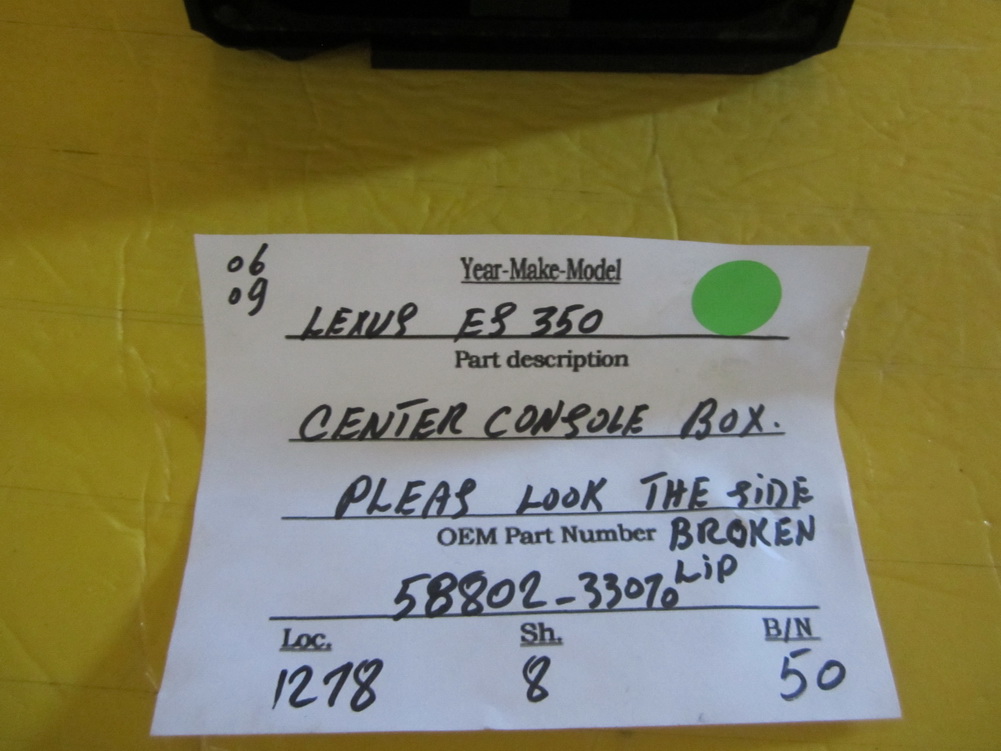 06
09
Year-Make-Model
LEXUS ES 350
Part description
CENTER CONSOLE BOX.
PLEAS LOOK THE SIDE
OEM Part Number BROKEN
LiP
58802-33070
Loc. Sh. B/N
1278 8 50